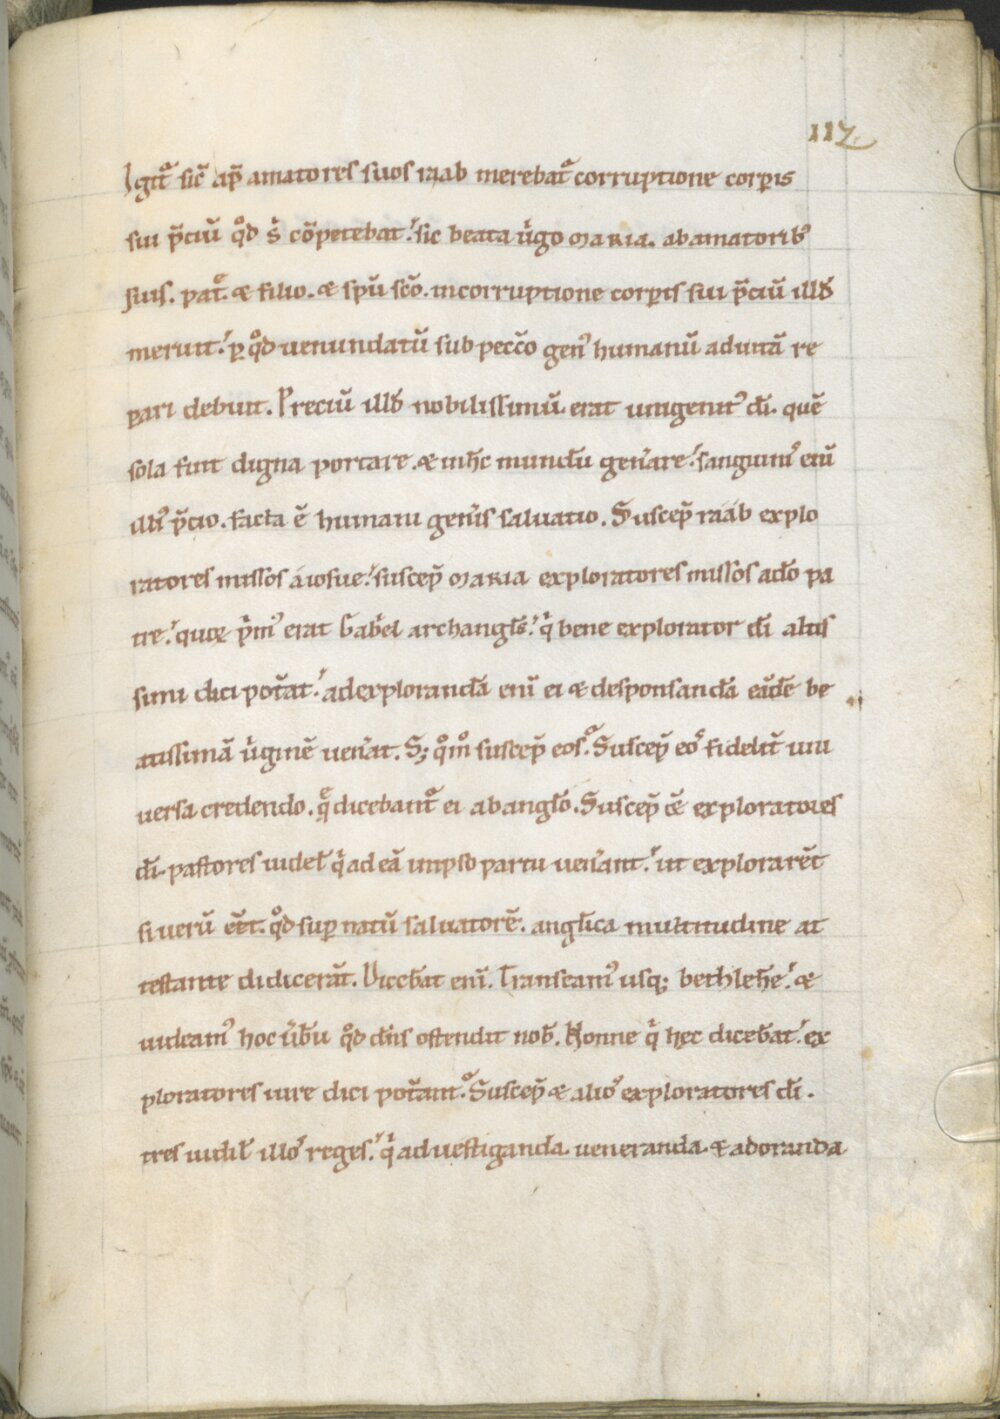 112
Igit᷑ sic̄ ap̄ amatores suos raab merebat᷑ corruptione corꝑis
sui p̄ciū qd̊ s̓ cōpetebat. sic beata v̓go MARIA. ab amatorib᷒
suis. pat̄e. & filio. & spū scō. incorruptione corꝑis sui p̄ciū ill̄d
meruit. ꝑ qd̊ uenundatū sub pecc̄o gen᷒ humanū ad uitā re
ꝑari debuit. Preciū ill̄d nobilissimū erat unigenit᷒ dī. quē
sola fuit digna portare. & in h̄c mundū gen̓are. sanguini᷒ eni̅
illi᷒ p̄cio. facta ē humani gen̓is saluatio. Suscep̄ raab explo
ratores missos a iosue. suscep̄ MARIA exploratores missos a dō pa
tre. quoꝝ p̓m᷒ erat Gab̓el archangl̄s. q̓ bene explorator dī altis
simi dici pot̄at. ad explorandā eni̅ ei & desponsandā eād̄e be
atissimā v̓ginē ven̓at. S; qm̊o suscep̄ eos. Suscep̄ eo᷒ fidelit̄ uni
uersa credendo. q̄ dicebant᷑ ei ab anglo̅. Suscep̄ c̄e exploratores
dī. pastores uidel̄ q̓ ad eā in ipso partu ven̓ant. ut explorarēt
si uerū ēet. qd̊ suꝑ natū saluatorē. angl̄ica multitudine at
testante didicerāt. Diceb̄at eni̅. Transeam᷒ usq; bethlehē. &
uideam᷒ hoc v̓bū qd̊ dn̄s ostendit nob̄. Nonne q̓ hec diceb̄at. ex
ploratores iure dici pot̄ant. Suscep̄ & alio᷒ exploratores dī.
tres uidil̄ illo᷒ reges. q̓ ad uestiganda. ueneranda. & adoranda